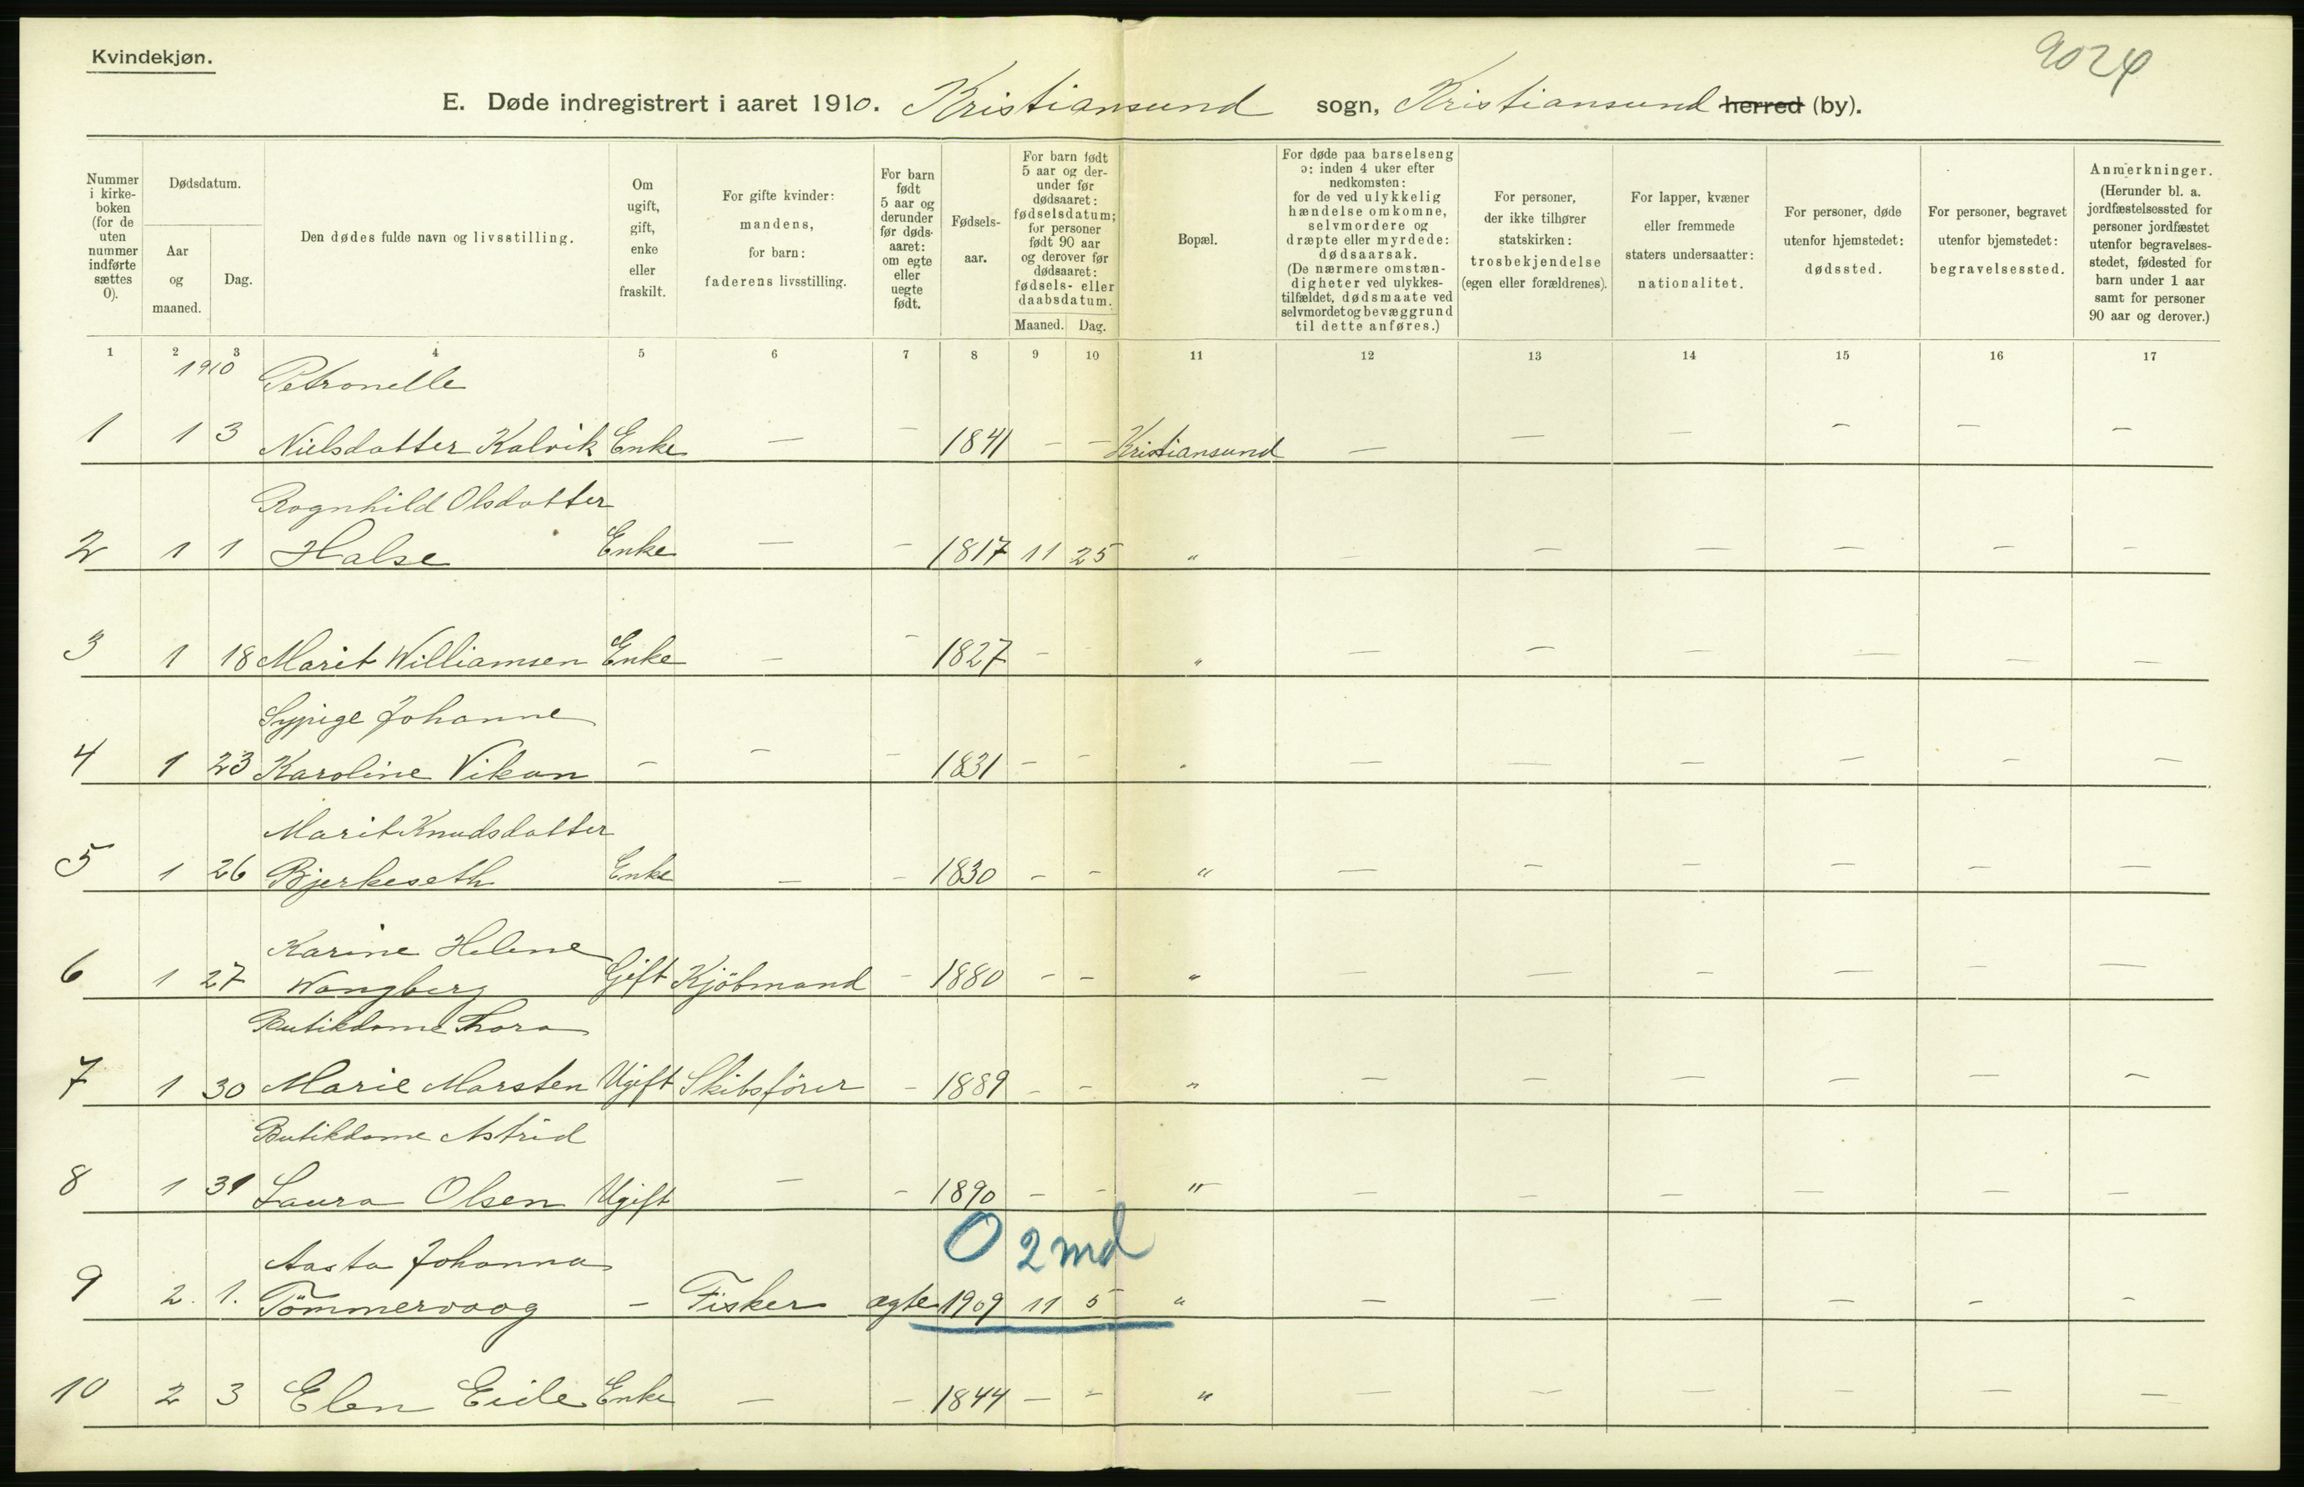 Kvindekjøn.
9024
E. Døde indregistrert i aaret 1910. Kristiansund sogn, Kristiansund herred (by).
Nummer i kirke-boken (for de uten nummer indførte sættes 0).
Dødsdatum.
Aar og maaned.
Dag.
Den dødes fulde navn og livsstilling.
Om ugift, gift, enke eller fraskilt.
For gifte kvinder: mandens, for barn: faderens livsstilling.
For barn født 5 aar og derunder før døds-aaret: om egte eller uegte født.
Fødsels-aar.
For barn født 5 aar og der-under før dødsaaret: fødselsdatum; for personer født 90 aar og derover før dødsaaret: fødsels- eller daabsdatum.
Maaned. Dag.
Bopæl.
For døde paa barselseng ɔ: inden 4 uker efter nedkomsten: for de ved ulykkelig hændelse omkomne, selvmordere og dræpte eller myrdede: dødsaarsak. (De nærmere omstæn-digheter ved ulykkes-tilfældet, dødsmaate ved selvmordet og bevæggrund til dette anføres.)
For personer, der ikke tilhører statskirken: trosbekjendelse (egen eller forældrenes).
For lapper, kvæner eller fremmede staters undersaatter: nationalitet.
For personer, døde utenfor hjemstedet: dødssted.
For personer, begravet utenfor bjemstedet: begravelsessted.
Anmerkninger. (Herunder bl. a. jordfæstelsessted for personer jordfæstet utenfor begravelses-stedet, fødested for barn under 1 aar samt for personer 90 aar og derover.)
1 2 3 4 5 6 7 8 9 10 11 12 13 14 15 16 17
1910 Petronelle
1 1 3 Nielsdatter Kalvik Enke — — 1841 — — Kristiansund — — — — — —
Ragnhild Olsdatter
2 1 1 Halse Enke — — 1817 11 25 " — — — — — —
3 1 18 Marit Williamsen Enke — — 1827 — — " — — — — — —
Sypige Johanne
4 1 23 Karoline Vikan — — — 1831 — — " — — — — — —
Marit Knudsdatter
5 1 26 Bjerkeseth Enke — — 1830 — — " — — — — — —
Karine Helene
6 1 27 Wangberg Gift Kjöbmand — 1880 — — " — — — — — —
Butikdame Thora
7 1 30 Marie Marsten Ugift Skibsförer — 1889 — — " — — — — — —
Butikdame Astrid
8 1 31 Laura Olsen Ugift — — 1890 — — " — — — — — —
0 2 md
Aasta Johanna
9 2. 1. Tömmervaag — Fisker ægte 1909 11 5 " — — — — — —
10 2 3 Elen Eide Enke — — 1844 — — " — — — — — —